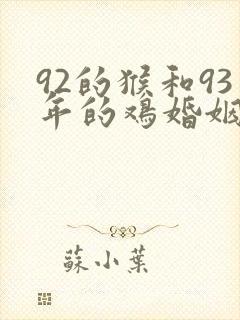 92的猴和93
年的鸡婚姻
蘇小葉